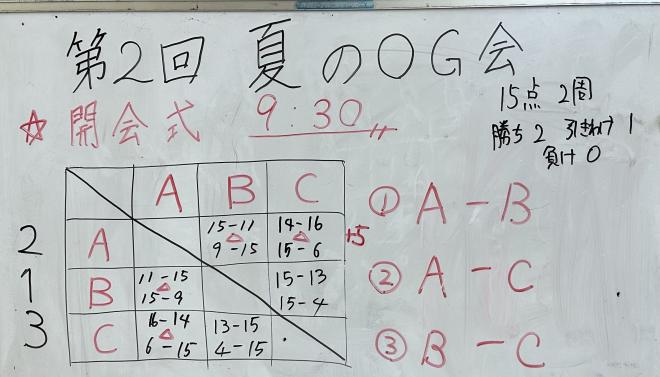 第2回 夏のOG会
15点 2周
勝ち 2 引きわけ 1
負け 0
☆ 開会式 9:30
A B C
2 A 15-11 △ 9-15 14-16 △ 15-6 +5
1 B 11-15 △ 15-9 15-13 15-4
3 C 16-14 △ 6-15 13-15 4-15
① A-B
② A-C
③ B-C